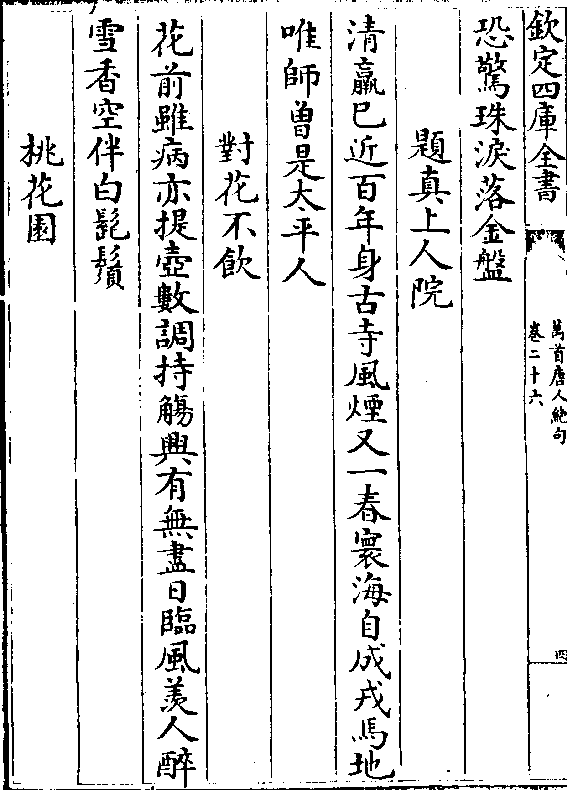 欽定四庫全書
萬首唐人絶句
卷二十六
四
恐驚珠淚落金盤
題真上人院
清羸已近百年身古寺風煙又一春寰海自成戎馬地
唯師曽是太平人
對花不飲
花前雖病亦提壺數調持觴興有無盡日臨風羡人醉
雪香空伴白髭鬚
桃花園